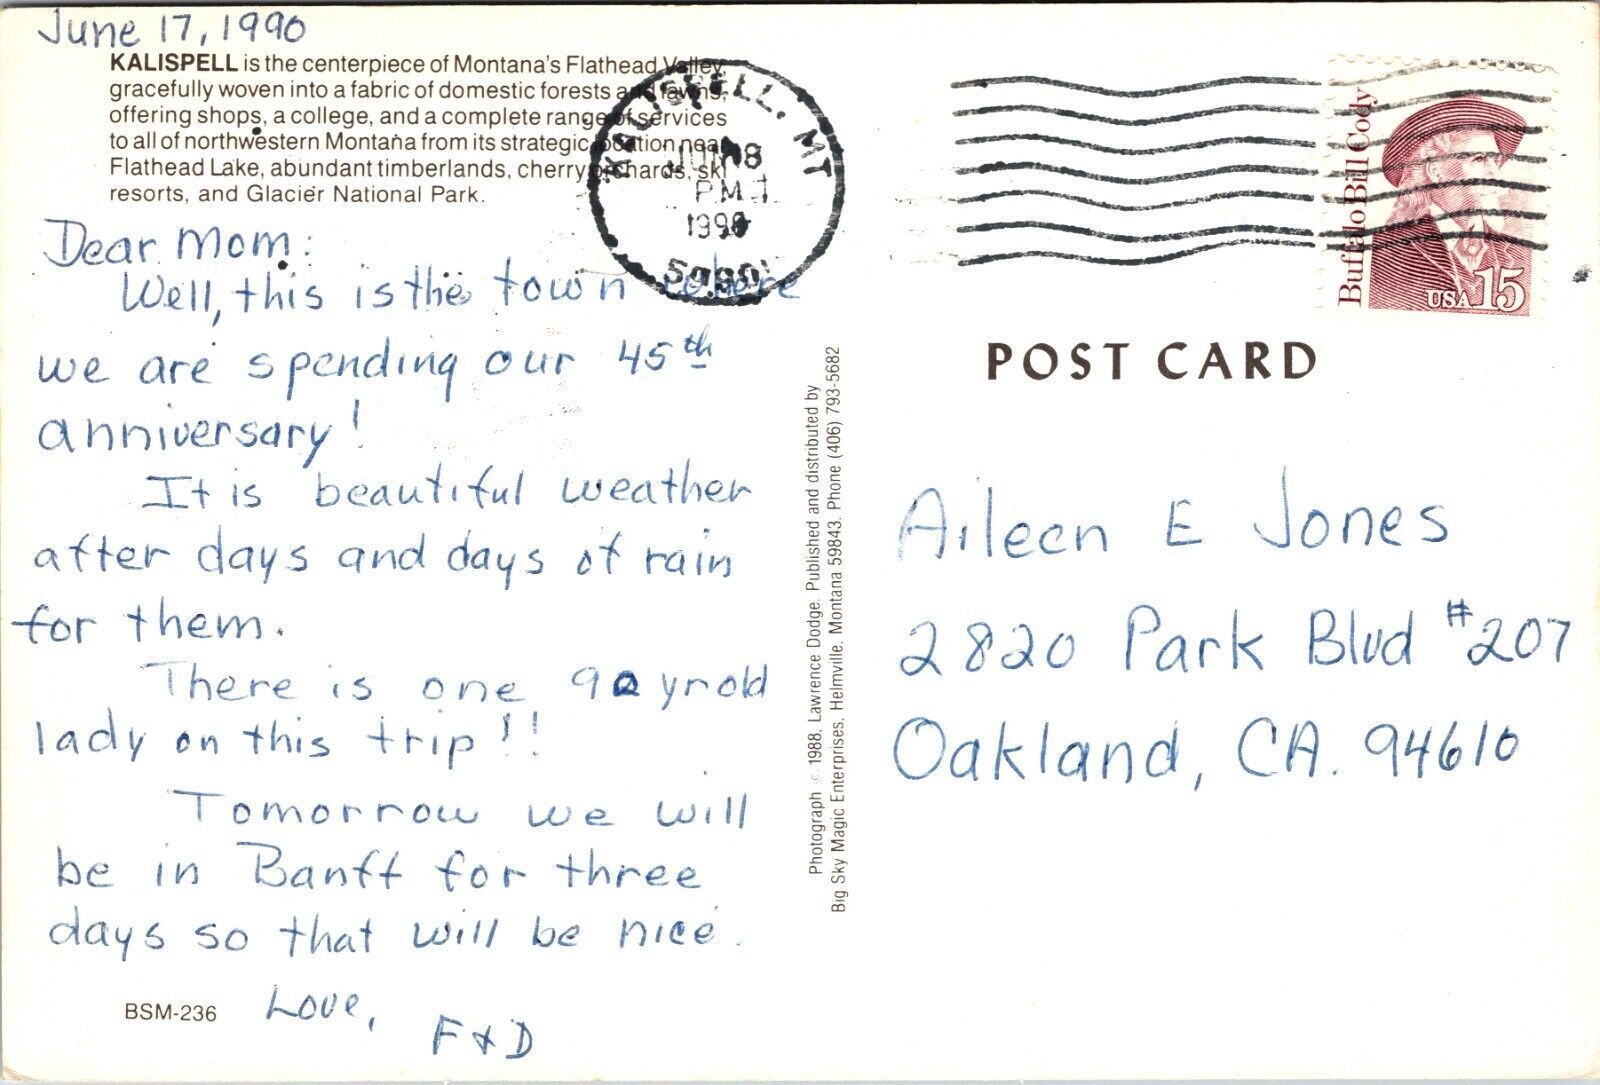 June 17, 1990
KALISPELL is the centerpiece of Montana's Flathead Valley
gracefully woven into a fabric of domestic forests and lawns,
offering shops, a college, and a complete range of services
to all of northwestern Montana from its strategic location near
Flathead Lake, abundant timberlands, cherry orchards, ski
resorts, and Glacier National Park.
KALISPELL, MT
JUN 18
PM
1990
Dear Mom:
Well, this is the town where
we are spending our 45th
anniversary!
It is beautiful weather
after days and days of rain
for them.
There is one 90 yr old
lady on this trip!!
Tomorrow we will
be in Banff for three
days so that will be nice.
Love,
F & D
BSM-236
Photograph © 1988, Lawrence Dodge. Published and distributed by
Big Sky Magic Enterprises, Helmville, Montana 59843. Phone (406) 793-5682
Buffalo Bill Cody
USA 15
POST CARD
Aileen E Jones
2820 Park Blvd #207
Oakland, CA. 94610